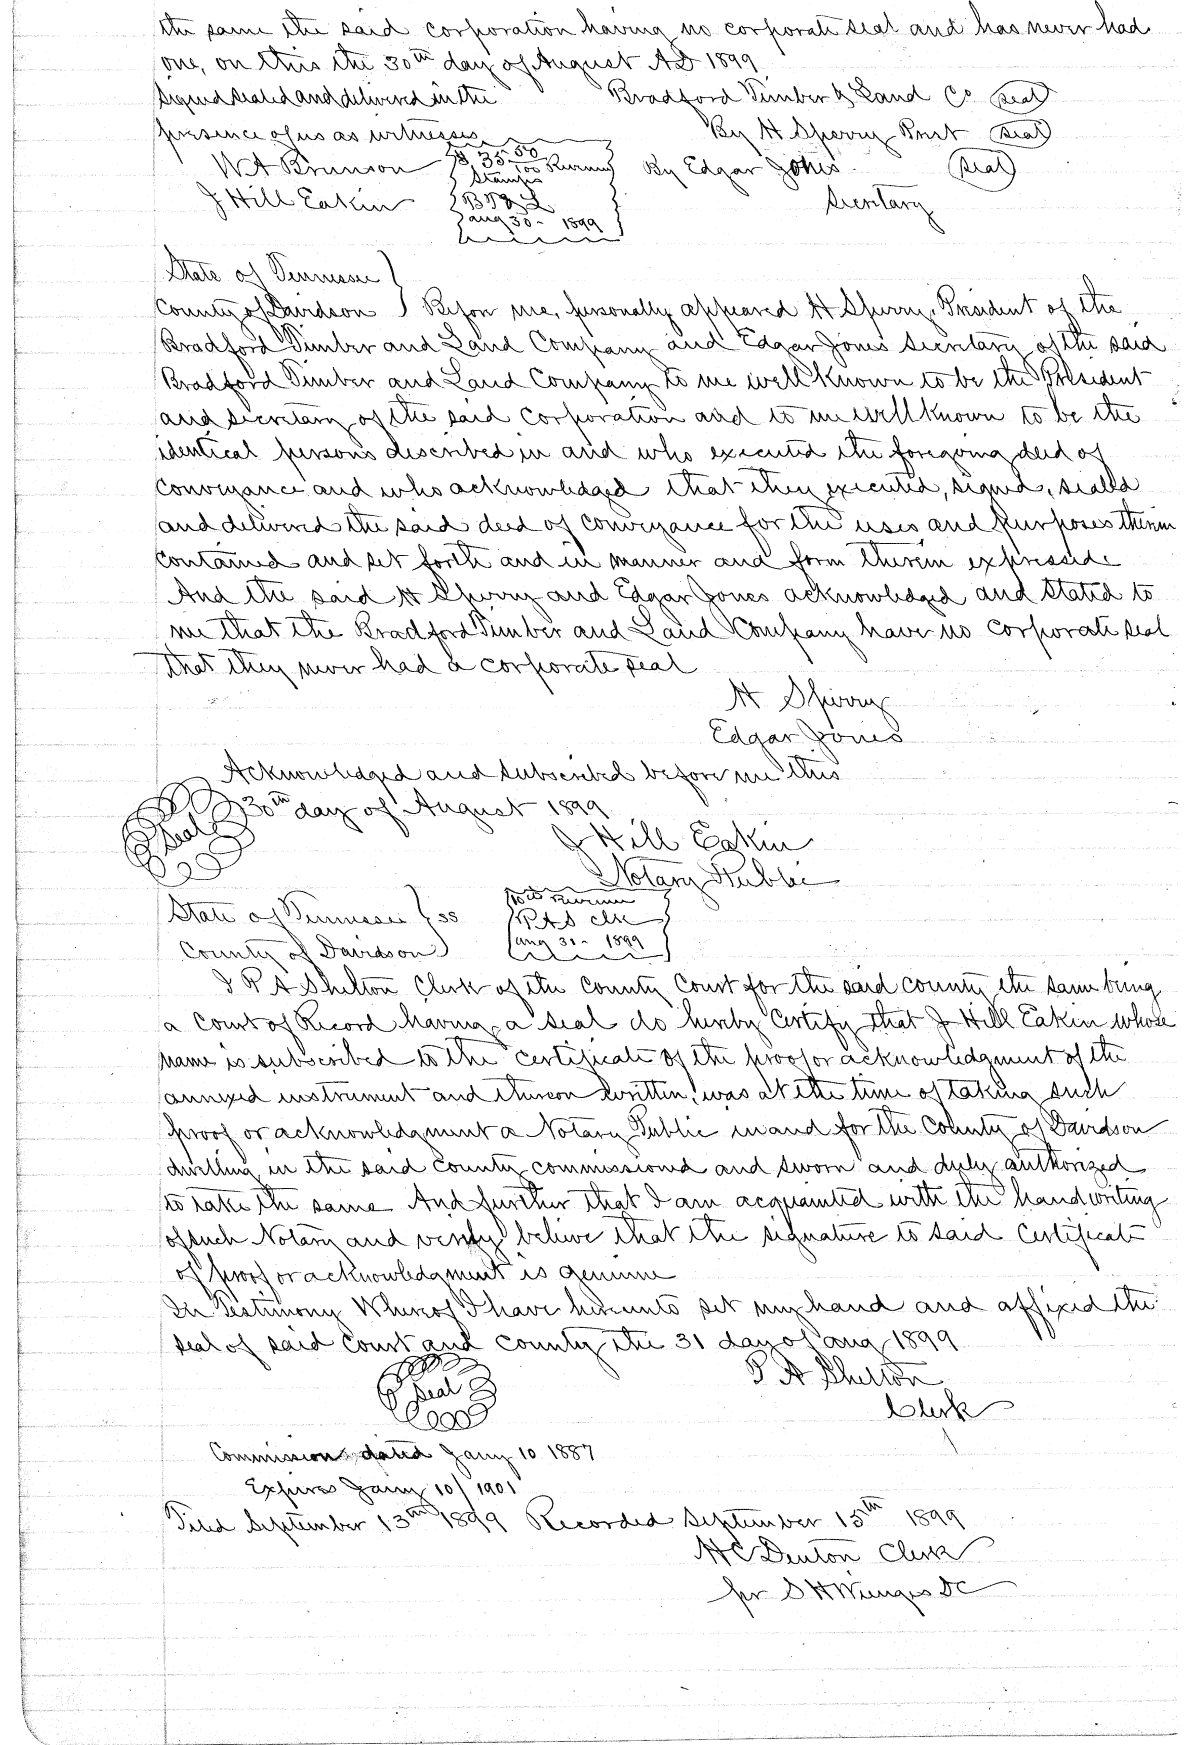 the same the said corporation having no corporate seal and has never had
one, on this the 30th day of August AD 1899
Signed sealed and delivered in the
Bradford Timber & Land Co Seal
presence of us as witnesses
By H Sperry Prest Seal
W A Brunson
$35 50/100 Revenue
Stamps
By Edgar Jones Seal
J Hill Eakin
B T & L
Secretary
aug 30 - 1899
State of Tennessee
County of Davidson } Before me, personally appeared H Sperry, President of the
Bradford Timber and Land Company and Edgar Jones Secretary of the said
Bradford Timber and Land Company to me well known to be the President
and secretary of the said corporation and to me well known to be the
identical persons described in and who executed the foregoing deed of
conveyance and who acknowledged that they executed, signed, sealed
and delivered the said deed of conveyance for the uses and purposes therein
contained and set forth and in manner and form therein expressed
And the said H Sperry and Edgar Jones acknowledged and stated to
me that the Bradford Timber and Land Company have no corporate seal
that they never had a corporate seal
H Sperry
Edgar Jones
Acknowledged and subscribed before me this
Seal 30th day of August 1899
J Hill Eakin
Notary Public
State of Tennessee } ss
County of Davidson
10 cts Revenue
P A S clk
aug 31 - 1899
I P A Shelton Clerk of the County Court for the said county the same being
a Court of Record having a seal do hereby certify that J Hill Eakin whose
name is subscribed to the certificate of the proof or acknowledgment of the
annexed instrument and thereon written, was at the time of taking such
proof or acknowledgment a Notary Public in and for the County of Davidson
dwelling in the said county commissioned and sworn and duly authorized
to take the same And further that I am acquainted with the handwriting
of such Notary and verily believe that the signature to said certificate
of proof or acknowledgment is genuine
In Testimony Whereof I have hereunto set my hand and affixed the
seal of said Court and county the 31 day of aug 1899
Seal
P A Shelton
Clerk
Commission dated Jany 10 1887
Expires Jany 10/1901
Filed September 13th 1899 Recorded September 15th 1899
H C Denton Clerk
per S H DC